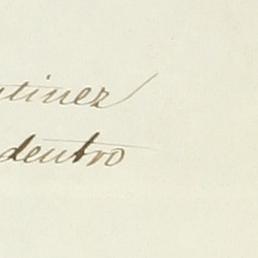 tinez
dentro